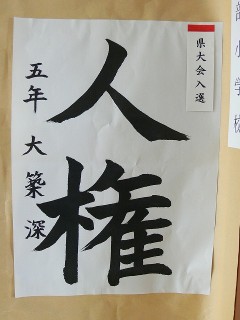 県大会入選
人権
五年 大築深
部小学校